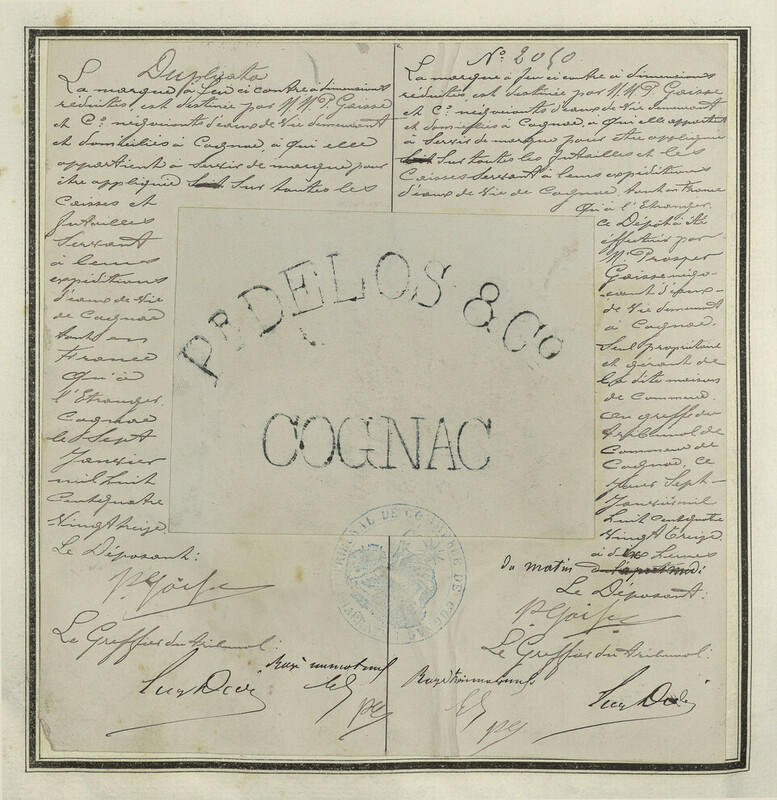 Duplicata
La marque à feu ci contre à dimensions
réduites, est destinée par M M P. Goisse
et Cº. négociants d'eaux de Vie demeurant
et domiciliés à Cognac, à qui elle
appartient à servir de marque pour
être appliquée sur toutes les
Caisses et
futailles
Servant
à leurs
expéditions
d'eaux de Vie
de Cognac
tant en
France
qu'à
l'Etranger.
Cognac
le Sept
Janvier
mil huit
Cent quatre
Vingt treize.
Le Déposant:
P. Goisse
Le Greffier du tribunal:
Rayé un mot nul
PG
Nº 2050
La marque à feu ci entre à dimensions
réduites, est destinée par M M P. Goisse
et Cº. négociants d'eaux de Vie demeurant
et domiciliés à Cognac, à qui elle appartient
à Servir de marque pour être appliquée
sur toutes les futailles et les
Caisses Servant à leurs expéditions
d'eaux de Vie de Cognac tant en France
qu'à l'Etranger.
Ce Dépôt a été
effectué par
M. Prosper
Goisse négo-
-ciant d'eaux-
de Vie demeurant
à Cognac.
Seul propriétaire
et gérant de
la dite maison
de Commerce.
au greffe du
tribunal de
Commerce de
Cognac, ce
Jour Sept
Janvier mil
huit cent quatre
Vingt treize
à dix heures
du matin
Le Déposant:
P. Goisse
Le Greffier du tribunal:
Rayé trois mots nuls
PG
PR DELOS & Cº
COGNAC
TRIBUNAL DE COMMERCE DE COGNAC